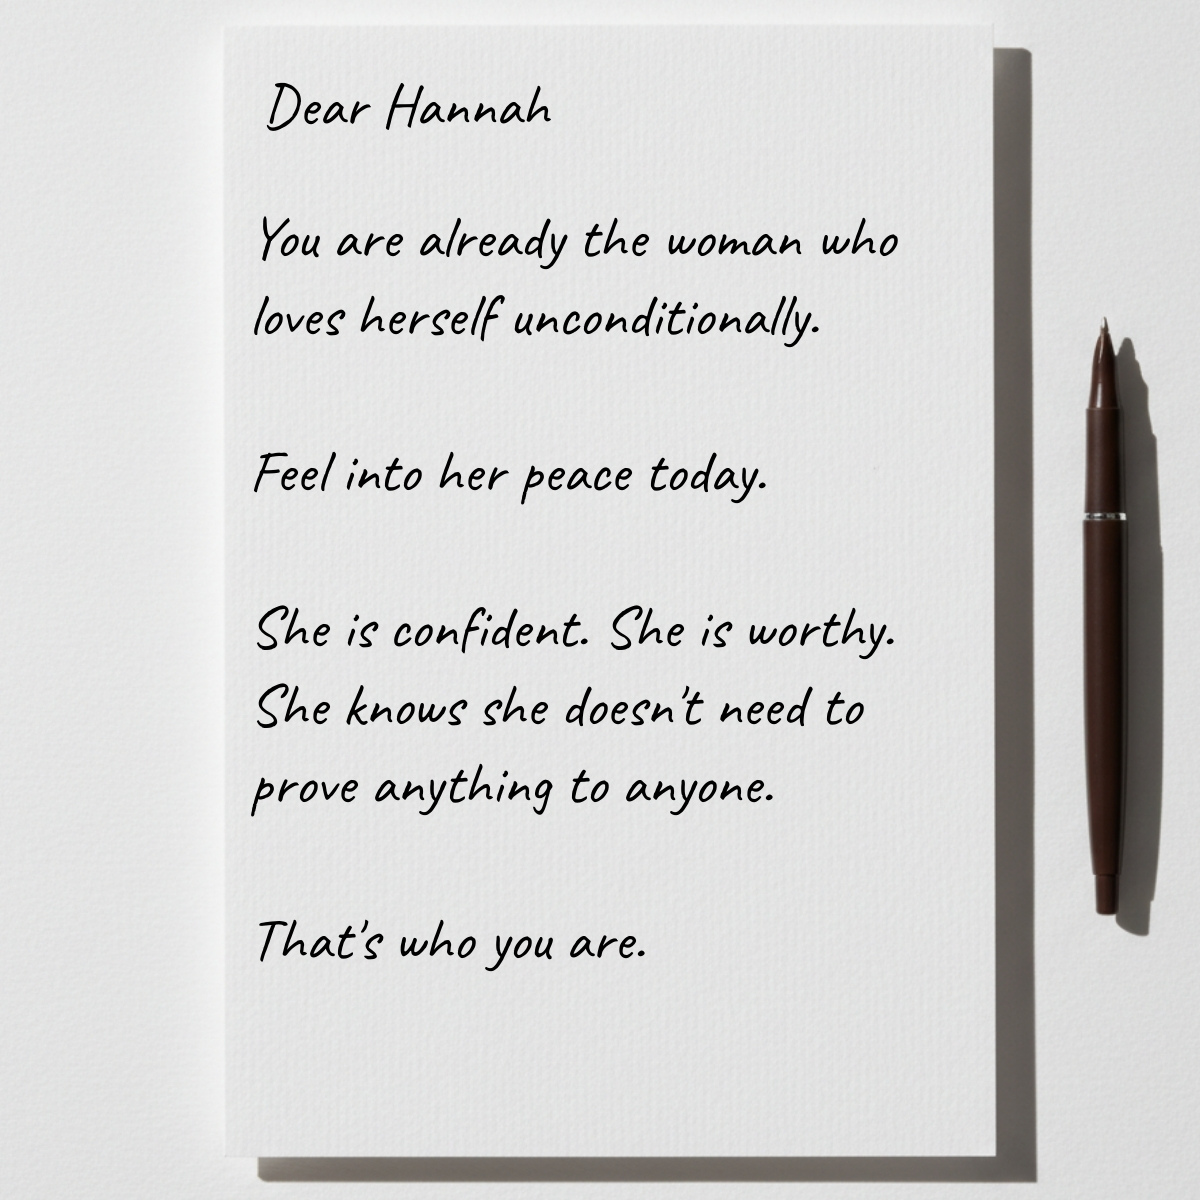 Dear Hannah
You are already the woman who
loves herself unconditionally.
Feel into her peace today.
She is confident. She is worthy.
She knows she doesn't need to
prove anything to anyone.
That's who you are.